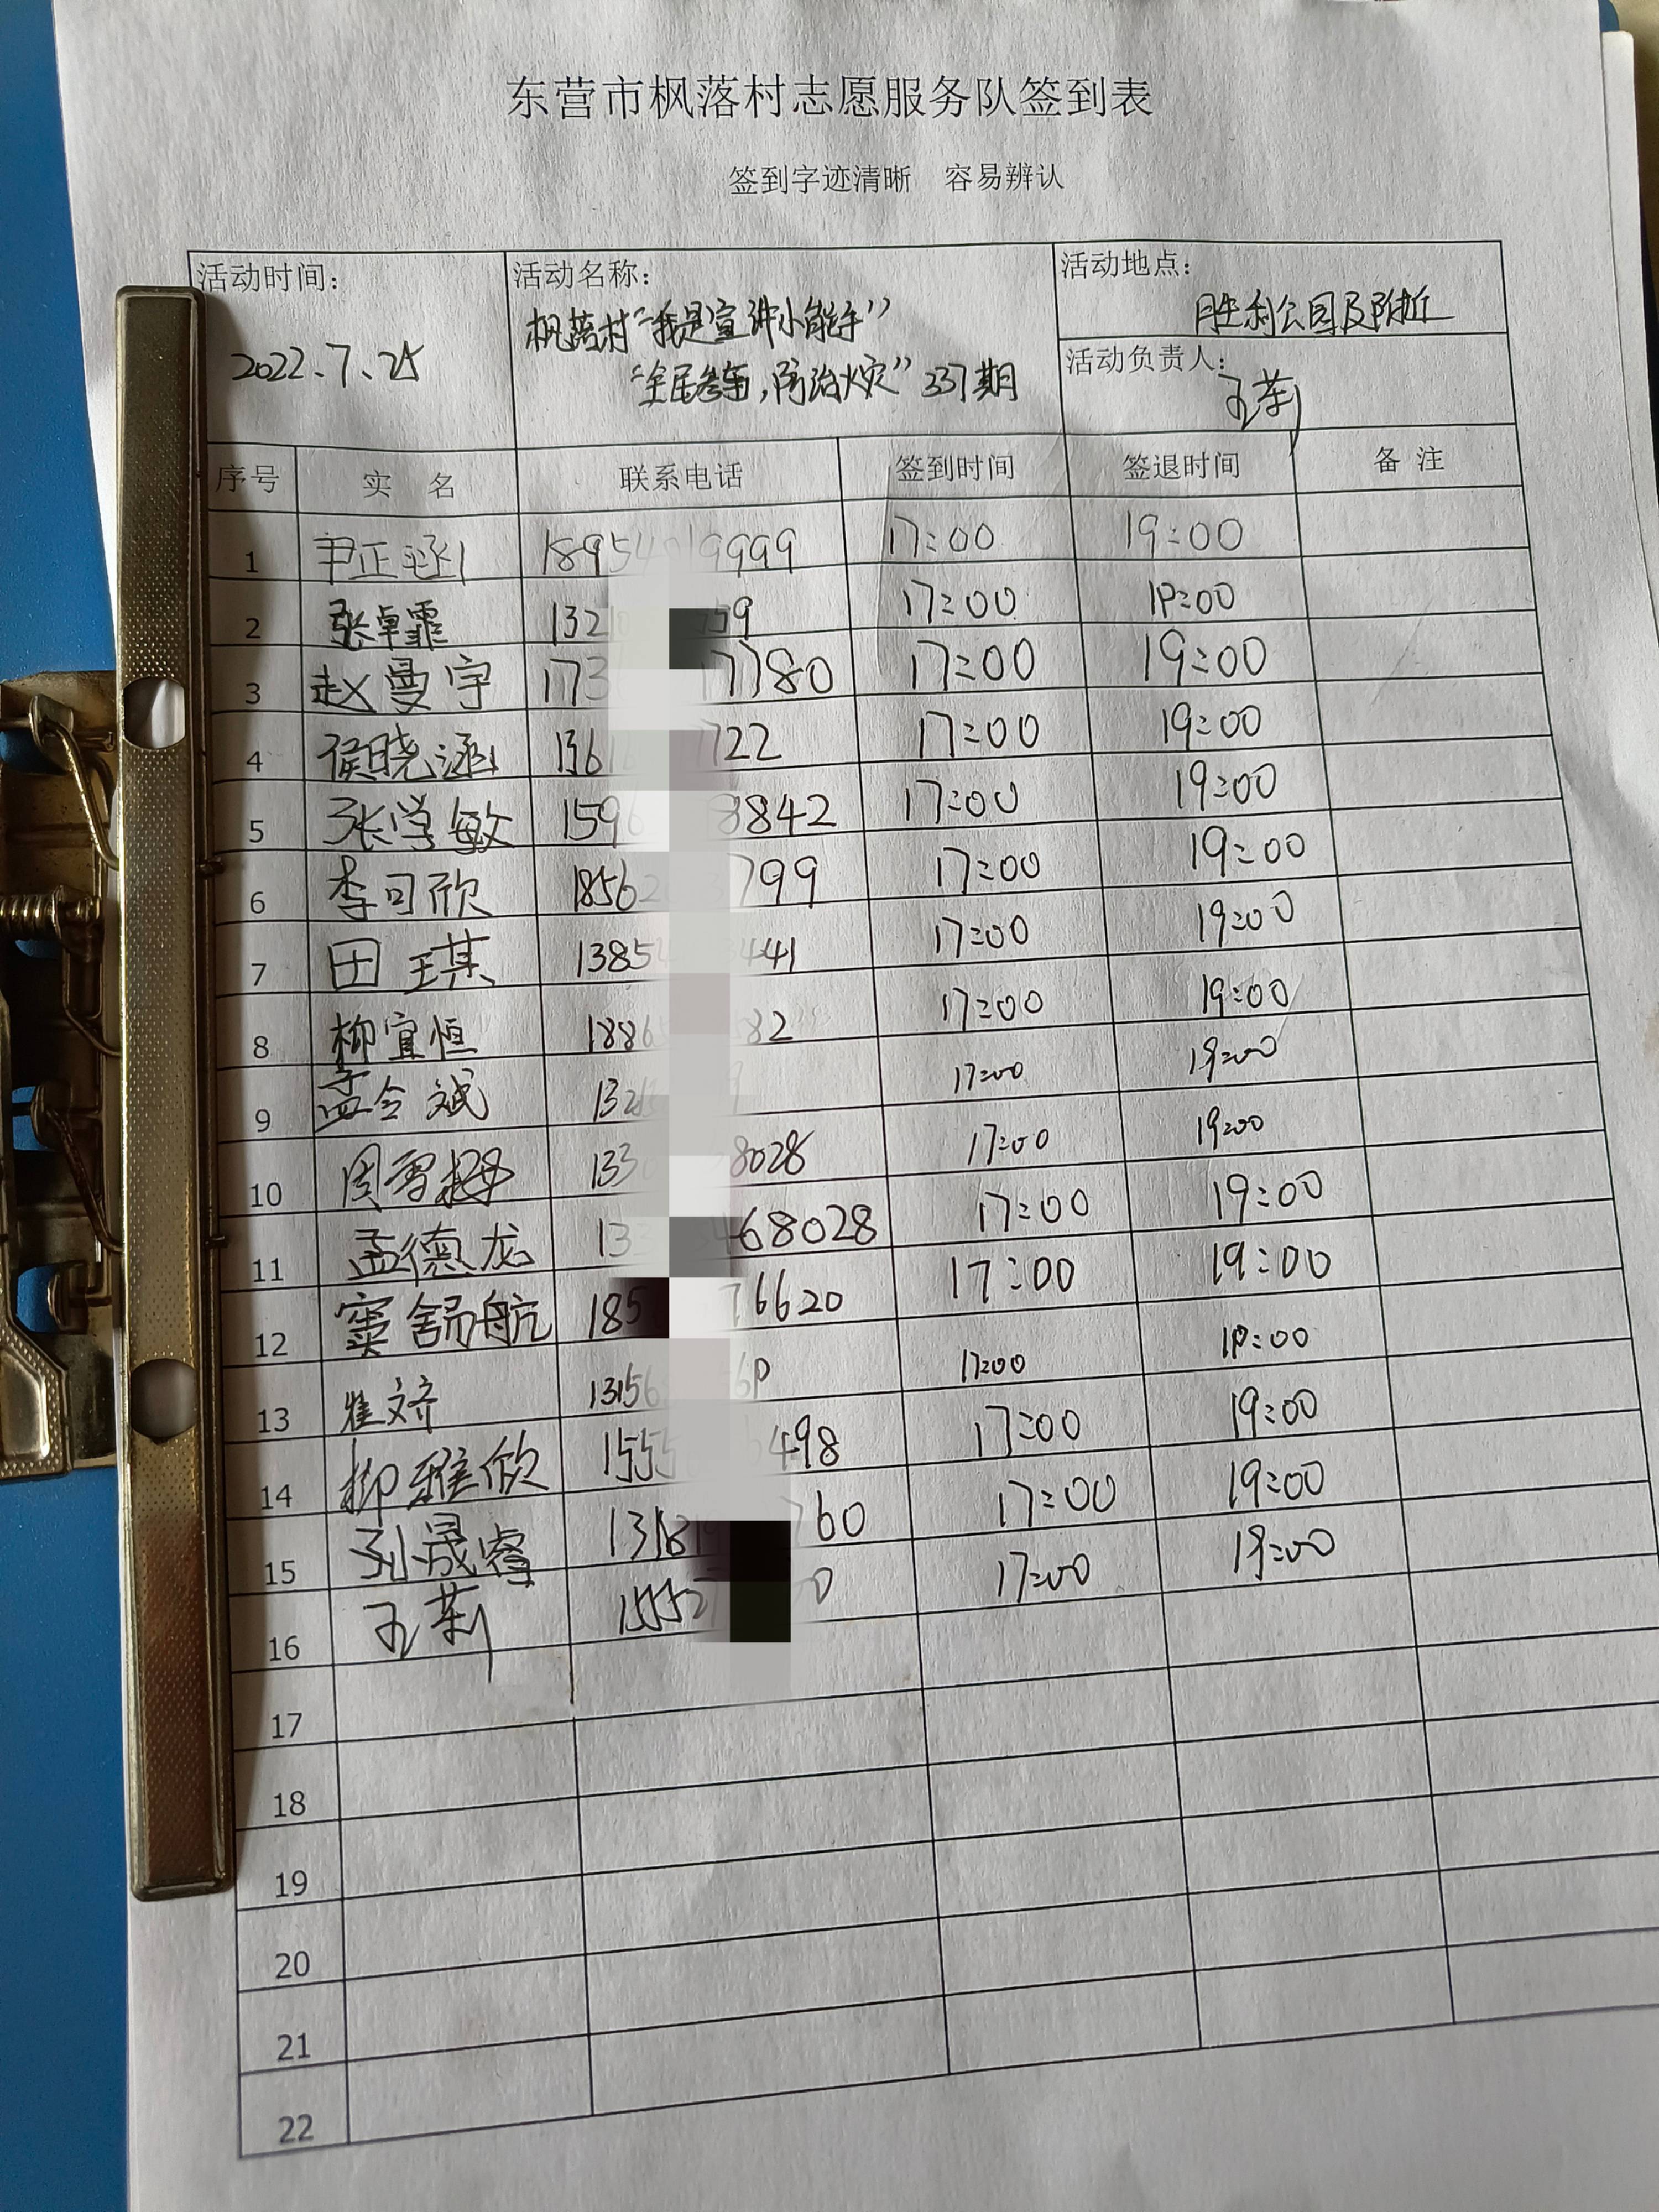 东营市枫落村志愿服务队签到表
签到字迹清晰 容易辨认
活动时间：
2022.7.25
活动名称：
枫落村“我是宣讲小能手”
“全民参与，防治火灾” 337期
活动地点：
胜利公园及附近
活动负责人：
王莉
序号 实 名 联系电话 签到时间 签退时间 备 注
1 尹正涵 17:00 19:00
2 张卓霏 132 59 17:00 19:00
3 赵曼宇 173 7780 17:00 19:00
4 侯晓涵 136 722 17:00 19:00
5 张学敏 159 8842 17:00 19:00
6 李可欣 1856 799 17:00 19:00
7 田琪 1385 441 17:00 19:00
8 柳宜恒 188 82 17:00 19:00
9 孟令斌 132 17:00 19:00
10 周雪 133 8028 17:00 19:00
11 孟德龙 13 68028 17:00 19:00
12 窦舒航 185 6620 17:00 19:00
13 崔文齐 1315 17:00 19:00
14 柳雅欣 155 498 17:00 19:00
15 孙晟睿 1318 760 17:00 19:00
16 王莉 1555 0 17:00 19:00
17
18
19
20
21
22